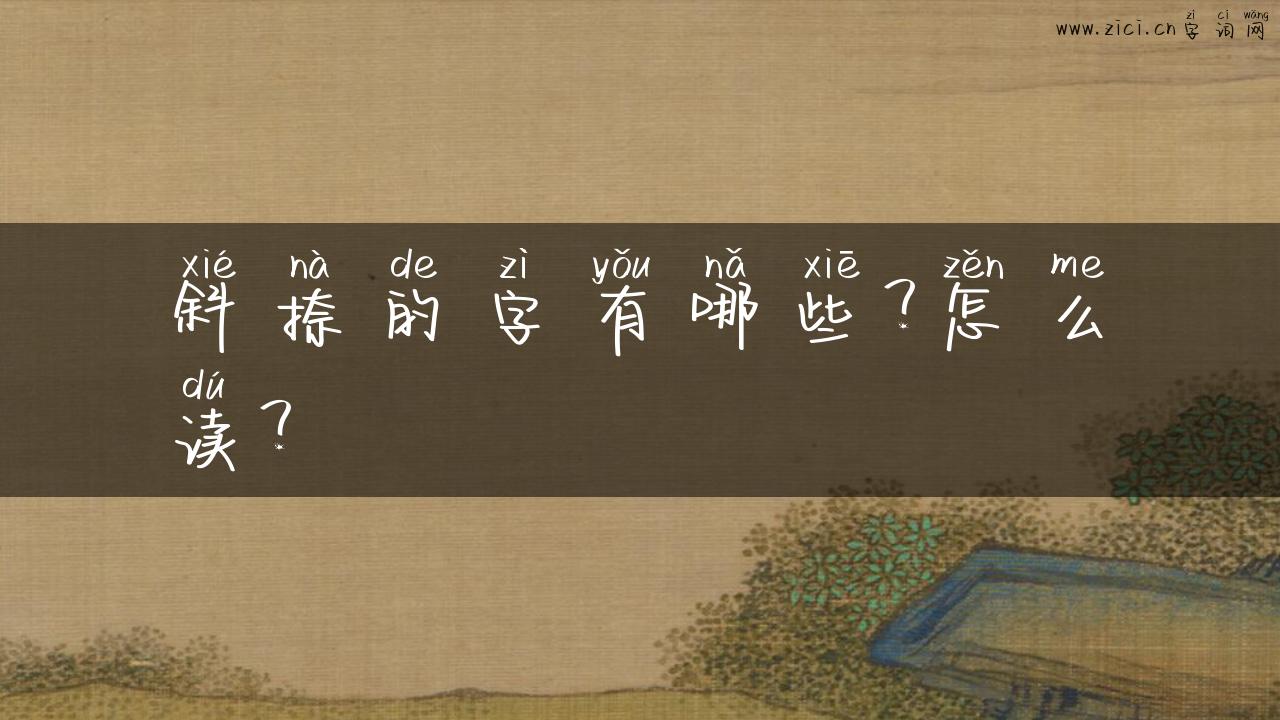 zì cí wǎng
www.zici.cn字词网
xié nà de zì yǒu nǎ xiē zěn me
斜捺的字有哪些？怎么
dú
读？